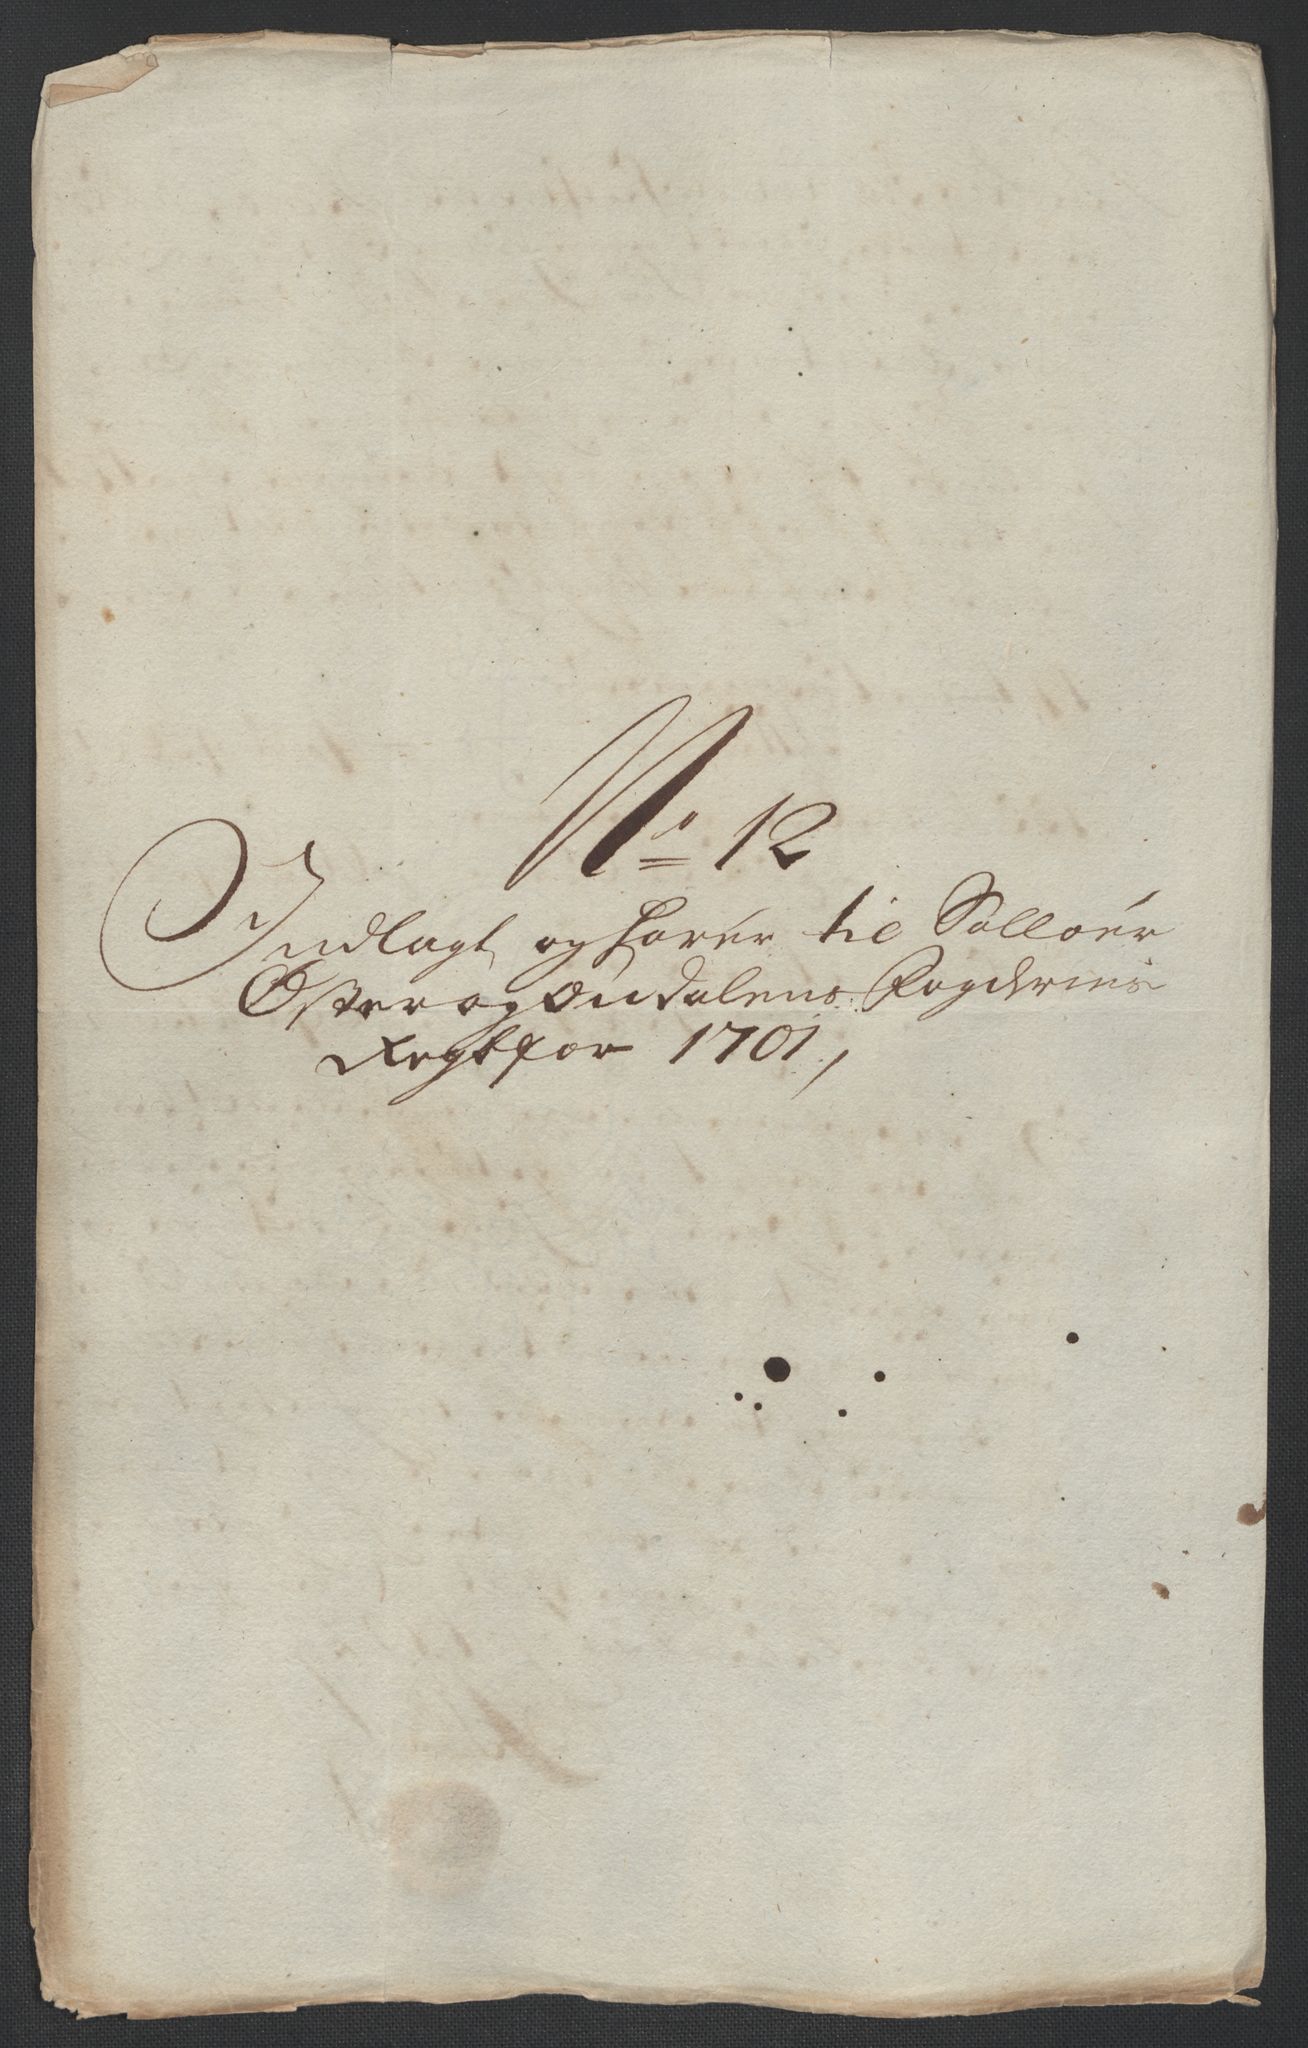 No 12
Indlagt og hører til Solloér
Øster og Oudalens Fogderies
Regsk for 1701,